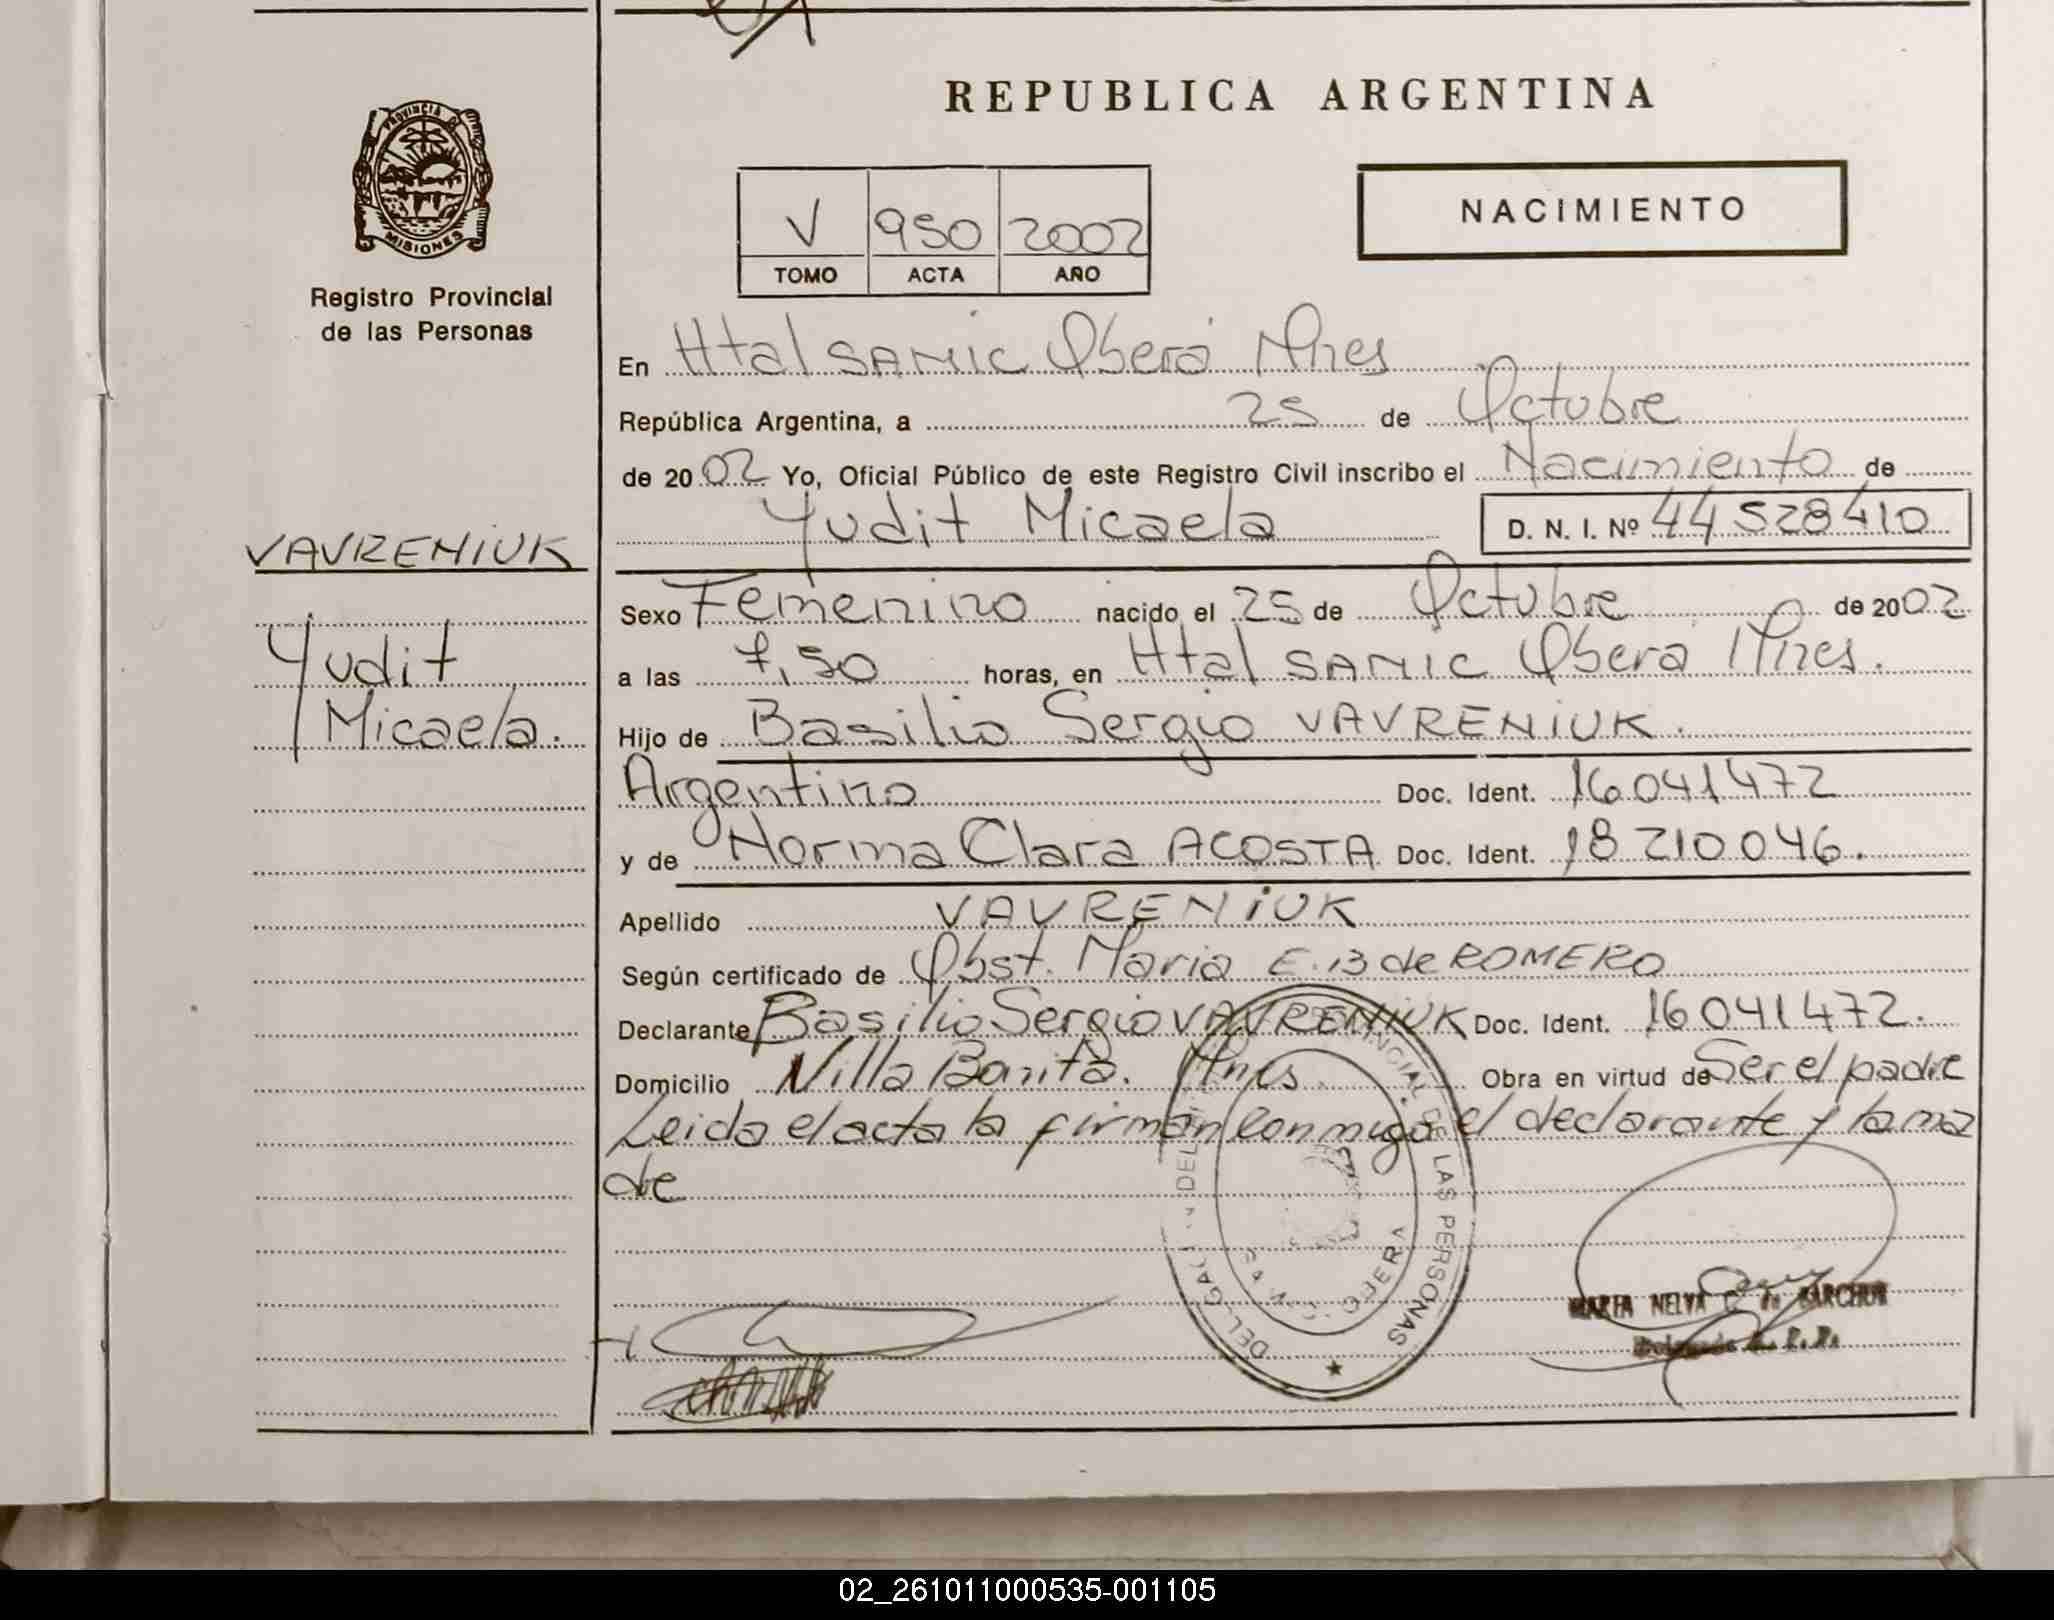 REPUBLICA ARGENTINA
PROVINCIA DE
MISIONES
Registro Provincial
de las Personas
V 950 2002
TOMO ACTA AÑO
NACIMIENTO
En Htal SAMIC Oberá Mnes
República Argentina, a 25 de Octubre
de 2002 Yo, Oficial Público de este Registro Civil inscribo el Nacimiento de
Yudit Micaela D. N. I. Nº 44528410
VAVRENIUK
Yudit
Micaela.
Sexo Femenino nacido el 25 de Octubre de 2002
a las 7,50 horas, en Htal SAMIC Oberá Mnes.
Hijo de Basilio Sergio VAVRENIUK.
Argentino Doc. Ident. 16041472
y de Norma Clara ACOSTA Doc. Ident. 18210046.
Apellido VAVRENIUK
Según certificado de Obst. Maria E. B de ROMERO
Declarante Basilio Sergio VAVRENIUK Doc. Ident. 16041472.
Domicilio Villa Bonita. Mnes. Obra en virtud de Ser el padre
Leida el acta la firman conmigo el declarante y la ma
de
DEL REGISTRO PROVINCIAL DE LAS PERSONAS
OBERA
MARTA NELVA C de
02_261011000535-001105